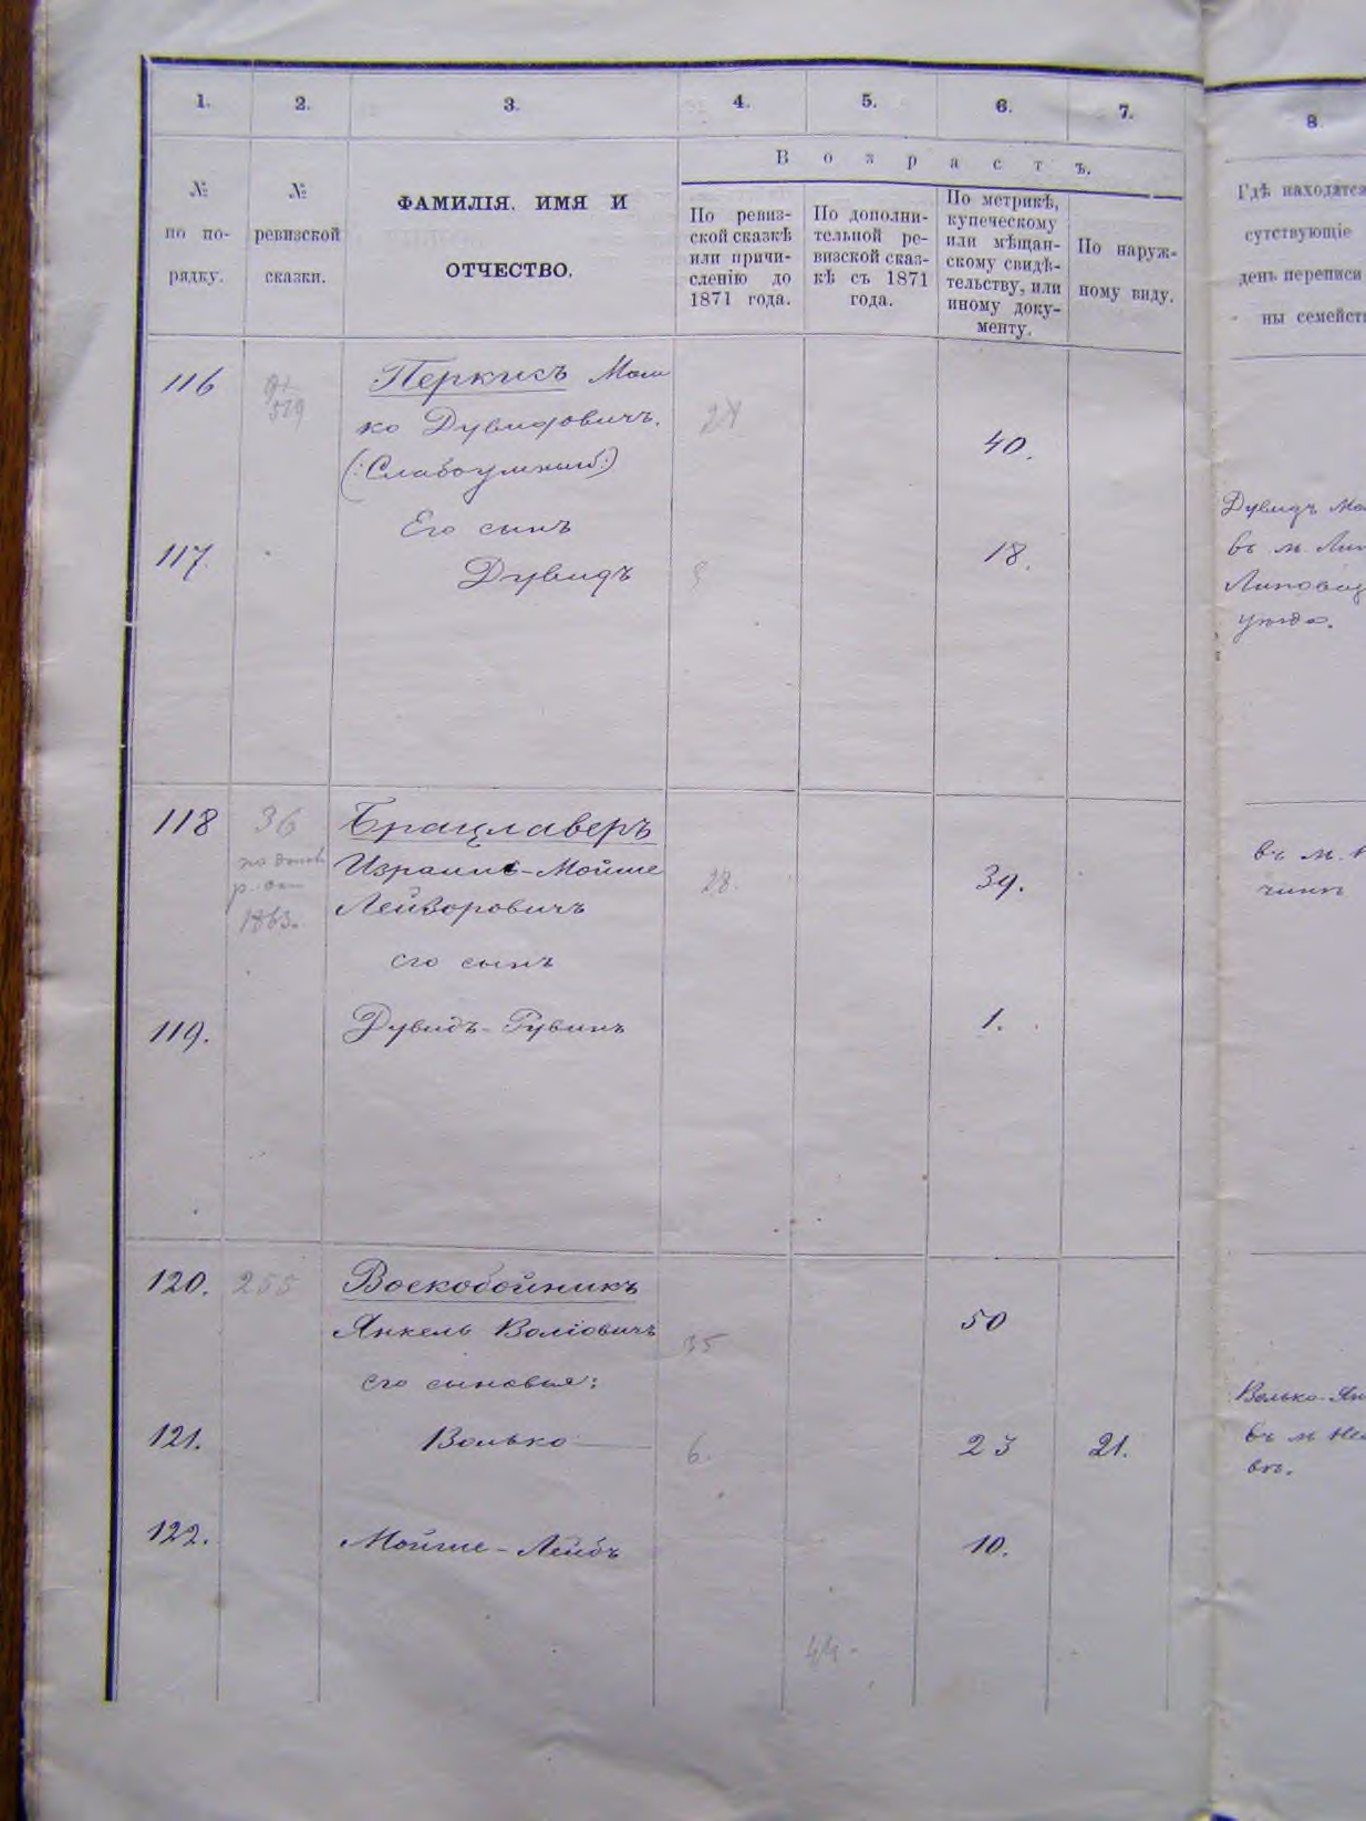 1.
2.
3.
4.
5.
6.
7.
8
№
по по-
рядку.
№
ревизской
сказки.
ФАМИЛІЯ, ИМЯ И
ОТЧЕСТВО.
Возрастъ.
По ревиз-
ской сказкѣ
или причи-
сленію до
1871 года.
По дополни-
тельной ре-
визской сказ-
кѣ съ 1871
года.
По метрикѣ,
купеческому
или мѣщан-
скому свидѣ-
тельству, или
иному доку-
менту.
По наруж-
ному виду.
Гдѣ находятся
сутствующіе
день переписи
ны семейст
116
519
Перкисъ Мош
ко Дувидовичъ.
24
40.
(:Слабоумный:)
Его сынъ
117.
Дувидъ
18.
Дувидъ Мо
въ м. Лип
Липовец
уѣзда.
118
36
Брацлаверъ
Израиль-Мойше
28.
39.
Лейзоровичъ
1863.
его сынъ
119.
Дувидъ-Рувинъ
1.
въ м.
чинѣ
120.
255
Воскобойникъ
Янкель Волiовичъ
35
50
его сыновья:
121.
Волько
6.
23
21.
Волько Ян
въ м
вѣ.
122.
Мойше-Лейбъ
10.
44-